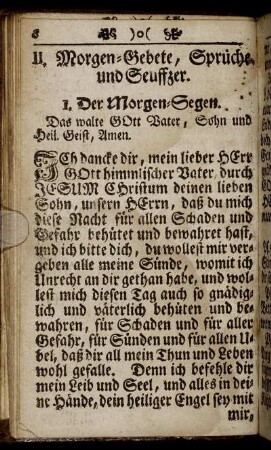 8 )o(
II. Morgen-Gebete, Sprüche
und Seuffzer.
1. Der Morgen-Segen.
Das walte GOtt Vater, Sohn und
Heil. Geist, Amen.
ICh dancke dir, mein lieber HErr
GOtt himmlischer Vater durch
JESUM Christum deinen lieben
Sohn, unsern HErrn, daß du mich
diese Nacht für allen Schaden und
Gefahr behütet und bewahret hast,
und ich bitte dich, du wollest mir ver-
geben alle meine Sünde, womit ich
Unrecht an dir gethan habe, und wol-
lest mich diesen Tag auch so gnädig-
lich und väterlich behüten und be-
wahren, für Schaden und für aller
Gefahr, für Sünden und für allen U-
bel, daß dir all mein Thun und Leben
wohl gefalle. Denn ich befehle dir
mein Leib und Seel, und alles in dei-
ne Hände, dein heiliger Engel sey mit
mir,